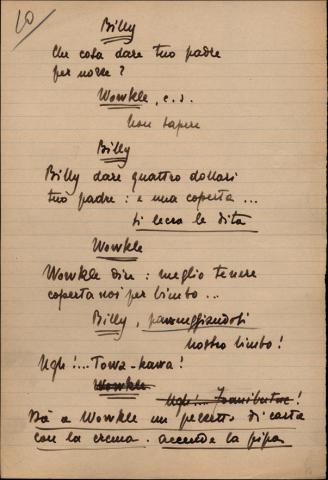 10
Billy
Che cosa dare tuo padre
per nozze?
Wowkle, c. s.
Non sapere
Billy
Billy dare quattro dollari
tuo padre: e una coperta...
si lecca le dita
Wowkle
Wowkle dire: meglio tenere
coperta noi per bimbo...
Billy, pavoneggiandosi
nostro bimbo!
Ugh!... Towa-kawa!
Wowkle
Ugh!...
Dà a Wowkle un pezzetto di carta
con la crema. accende la pipa